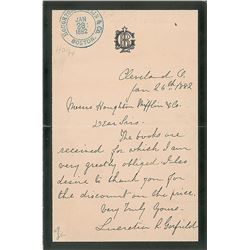 HOUGHTON, MIFFLIN & CO.
JAN
28
1882
BOSTON.
Cleveland O.
Jan 26th 1882
Messrs Houghton Mifflin & Co.
Dear Sirs.
The books are
received for which I am
very greatly obliged. I also
desire to thank you for
the discount on the price.
Very Truly Yours.
Lucretia R. Garfield